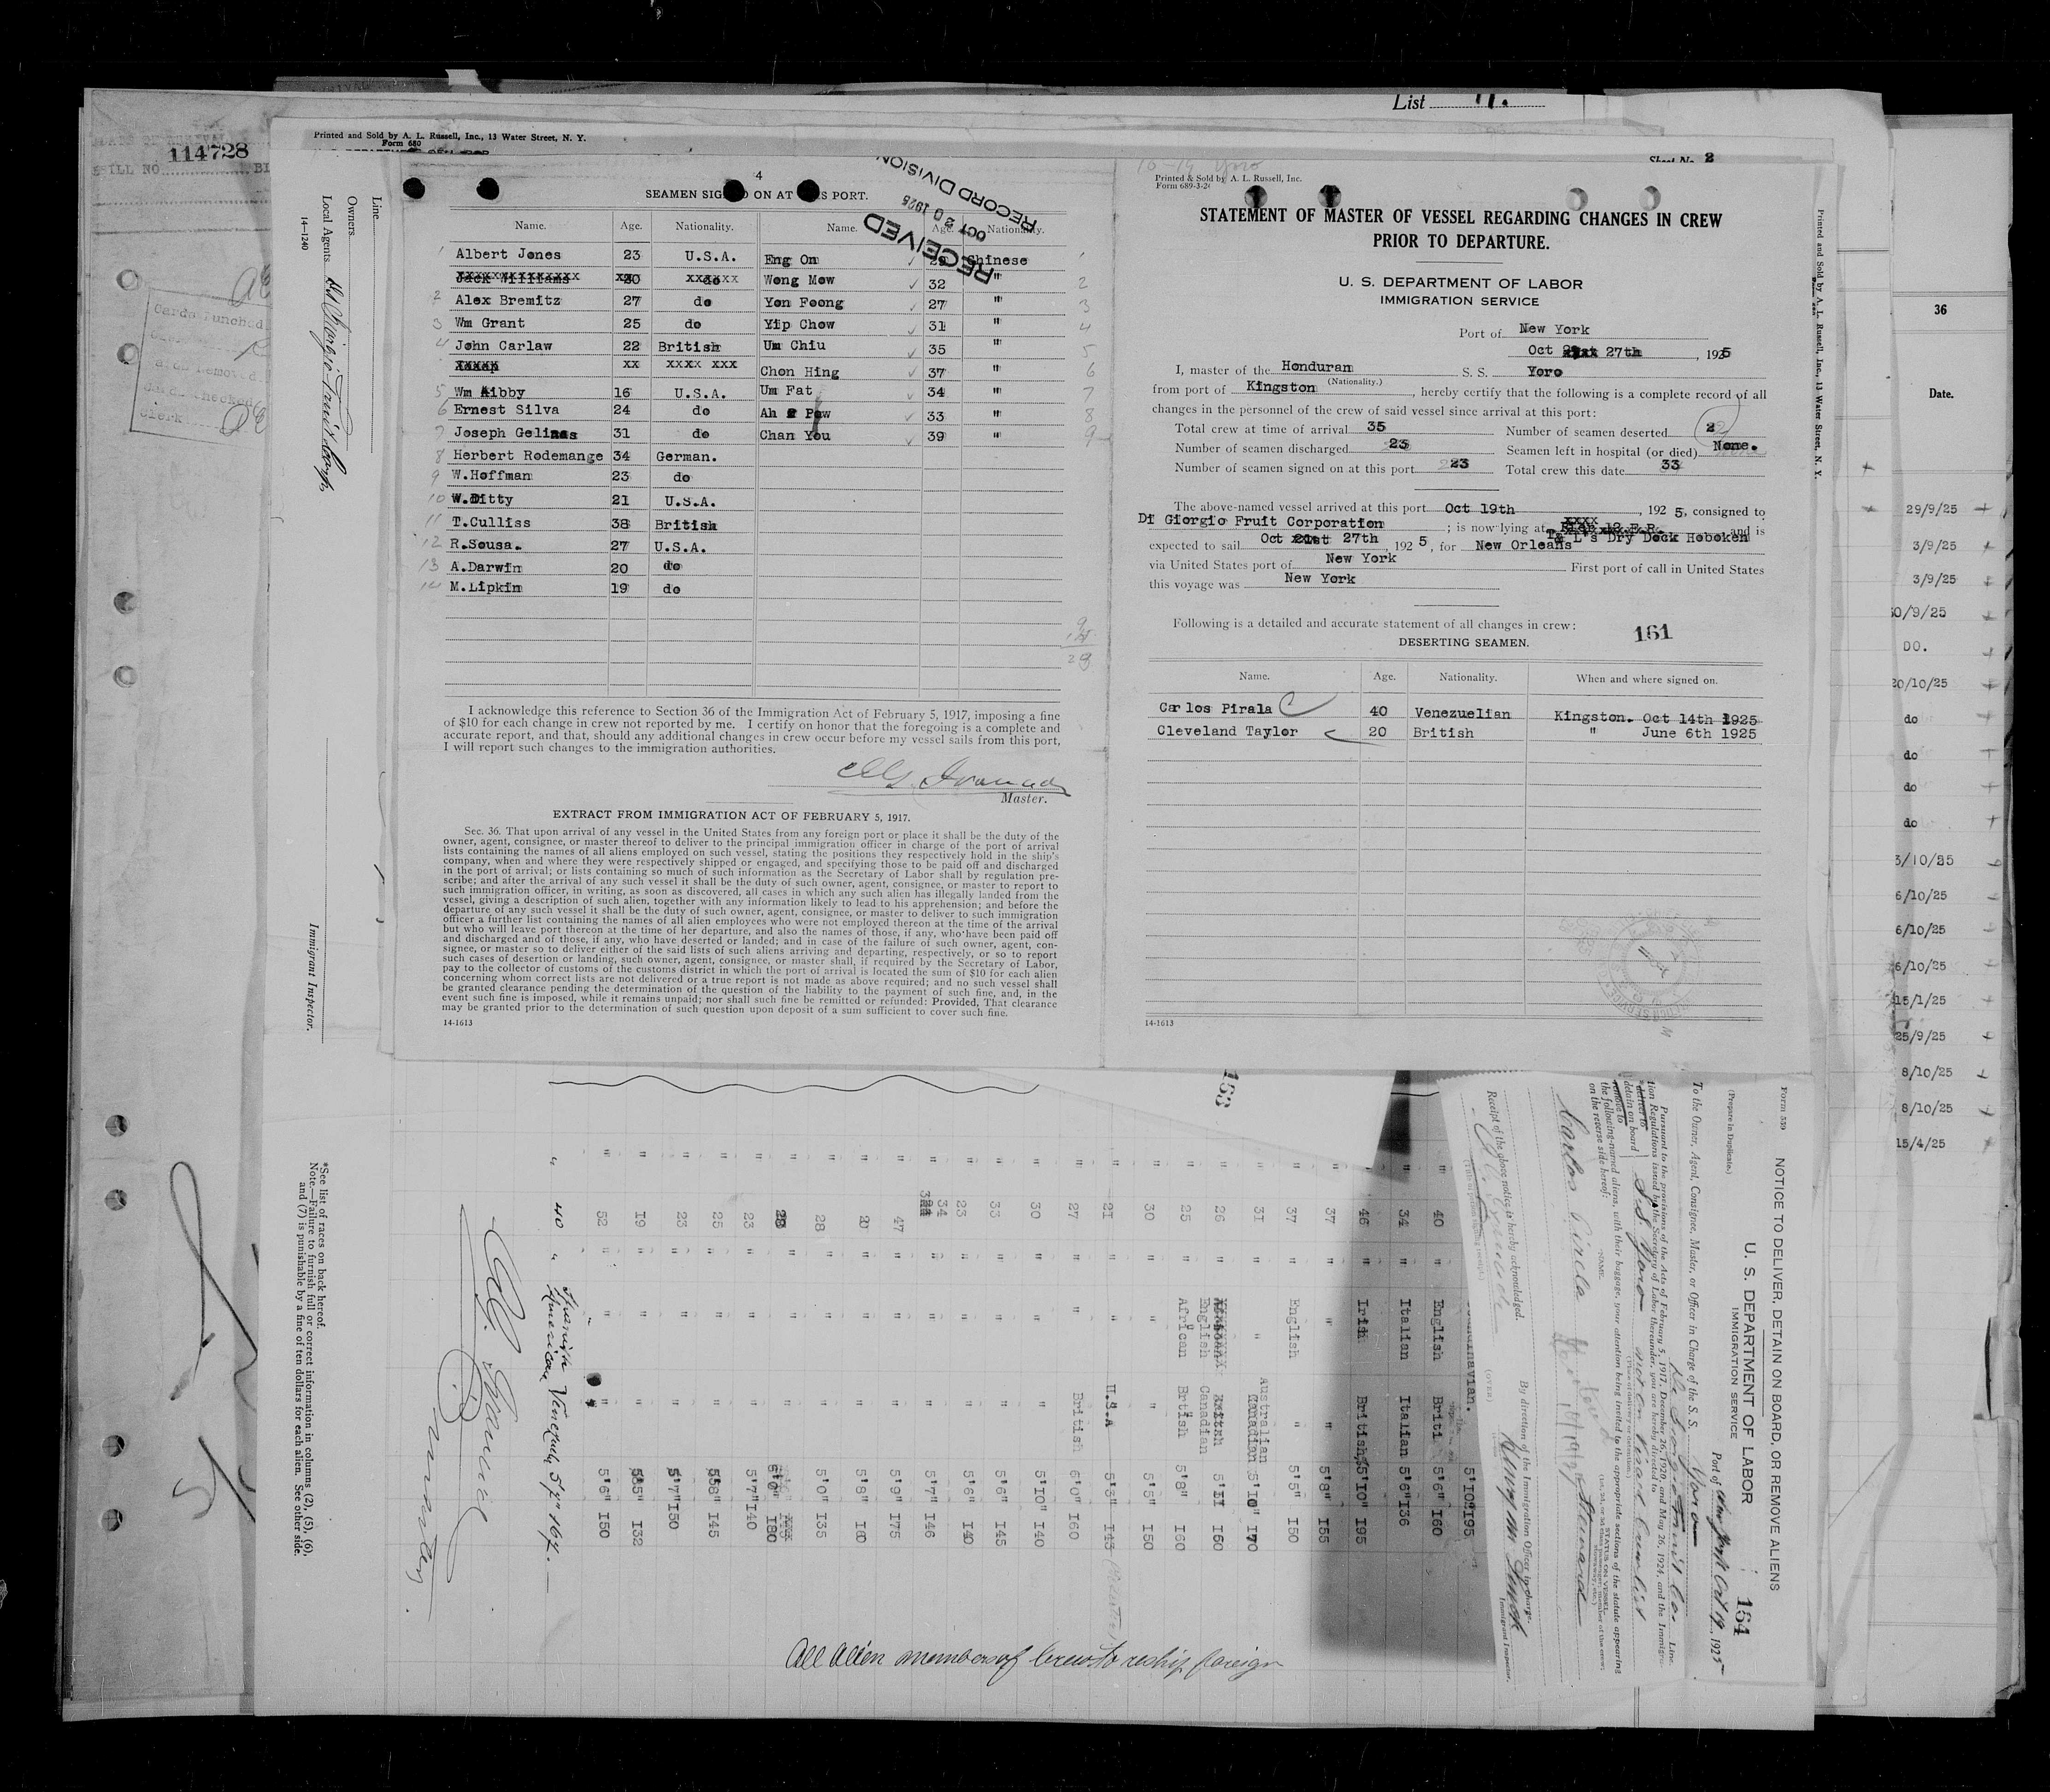 List
Printed and Sold by A. L. Russell, Inc., 13 Water Street, N. Y.
Form 680
114728
Sheet No. 2
4
SEAMEN SIGNED ON AT THIS PORT.
RECEIVED
OCT 20 1925
RECORD DIVISION
Name. Age. Nationality. Name. Age. Nationality.
1 Albert Jones 23 U.S.A. Eng On 29 Chinese 1
Jack Williams 20 do Wong Mow 32 " 2
2 Alex Bremitz 27 do Yon Foong 27 " 3
3 Wm Grant 25 do Yip Chow 31 " 4
4 John Carlaw 22 British Um Chiu 35 " 5
xx xxxx xxx Chon Hing 37 " 6
5 Wm Aibby 16 U.S.A. Um Fat 34 " 7
6 Ernest Silva 24 do Ah Pow 33 " 8
7 Joseph Gelinas 31 do Chan You 39 " 9
8 Herbert Rodemange 34 German.
9 W.Hoffman 23 do
10 W.Ditty 21 U.S.A.
11 T.Culliss 38 British
12 R.Sousa. 27 U.S.A.
13 A.Darwin 20 do
14 M.Lipkin 19 do
9
14
23
I acknowledge this reference to Section 36 of the Immigration Act of February 5, 1917, imposing a fine
of $10 for each change in crew not reported by me. I certify on honor that the foregoing is a complete and
accurate report, and that, should any additional changes in crew occur before my vessel sails from this port,
I will report such changes to the immigration authorities.
Master.
EXTRACT FROM IMMIGRATION ACT OF FEBRUARY 5, 1917.
Sec. 36. That upon arrival of any vessel in the United States from any foreign port or place it shall be the duty of the
owner, agent, consignee, or master thereof to deliver to the principal immigration officer in charge of the port of arrival
lists containing the names of all aliens employed on such vessel, stating the positions they respectively hold in the ship's
company, when and where they were respectively shipped or engaged, and specifying those to be paid off and discharged
in the port of arrival; or lists containing so much of such information as the Secretary of Labor shall by regulation pre-
scribe; and after the arrival of any such vessel it shall be the duty of such owner, agent, consignee, or master to report to
such immigration officer, in writing, as soon as discovered, all cases in which any such alien has illegally landed from the
vessel, giving a description of such alien, together with any information likely to lead to his apprehension; and before the
departure of any such vessel it shall be the duty of such owner, agent, consignee, or master to deliver to such immigration
officer a further list containing the names of all alien employees who were not employed thereon at the time of the arrival
but who will leave port thereon at the time of her departure, and also the names of those, if any, who have been paid off
and discharged and of those, if any, who have deserted or landed; and in case of the failure of such owner, agent, con-
signee, or master so to deliver either of the said lists of such aliens arriving and departing, respectively, or so to report
such cases of desertion or landing, such owner, agent, consignee, or master shall, if required by the Secretary of Labor,
pay to the collector of customs of the customs district in which the port of arrival is located the sum of $10 for each alien
concerning whom correct lists are not delivered or a true report is not made as above required; and no such vessel shall
be granted clearance pending the determination of the question of the liability to the payment of such fine, and, in the
event such fine is imposed, while it remains unpaid; nor shall such fine be remitted or refunded: Provided, That clearance
may be granted prior to the determination of such question upon deposit of a sum sufficient to cover such fine.
14-1613
Printed & Sold by A. L. Russell, Inc.
Form 689-3-24
STATEMENT OF MASTER OF VESSEL REGARDING CHANGES IN CREW
PRIOR TO DEPARTURE.
U. S. DEPARTMENT OF LABOR
IMMIGRATION SERVICE
Port of New York
Oct 27th, 1925
I, master of the Honduran S. S. Yoro
(Nationality.)
from port of Kingston, hereby certify that the following is a complete record of all
changes in the personnel of the crew of said vessel since arrival at this port:
Total crew at time of arrival 35 Number of seamen deserted 2
Number of seamen discharged 23 Seamen left in hospital (or died) None.
Number of seamen signed on at this port 23 Total crew this date 33
The above-named vessel arrived at this port Oct 19th, 1925, consigned to
Di Giorgio Fruit Corporation; is now lying at T& L's Dry Dock Hoboken and is
expected to sail Oct 27th, 1925, for New Orleans
via United States port of New York First port of call in United States
this voyage was New York
Following is a detailed and accurate statement of all changes in crew:
161
DESERTING SEAMEN.
Name. Age. Nationality. When and where signed on.
Carlos Pirala 40 Venezuelian Kingston. Oct 14th 1925
Cleveland Taylor 20 British " June 6th 1925
14-1613
Printed and Sold by A. L. Russell, Inc., 13 Water Street, N. Y.
36
Date.
29/9/25
3/9/25
3/9/25
30/9/25
DO.
20/10/25
do
do
do
do
3/10/25
6/10/25
6/10/25
6/10/25
15/1/25
25/9/25
8/10/25
8/10/25
15/4/25
Line
Owners
Local Agents
14-1240
Immigrant Inspector.
Cards Punched
Cards Removed
Cards Checked
Clerk
*See list of races on back hereof.
Note.—Failure to furnish full or correct information in columns (2), (5), (6),
and (7) is punishable by a fine of ten dollars for each alien. See other side.
153
Form 539
(Prepare in Duplicate.)
NOTICE TO DELIVER, DETAIN ON BOARD, OR REMOVE ALIENS
U. S. DEPARTMENT OF LABOR
IMMIGRATION SERVICE
154
Port of New York Oct 19, 1925
To the Owner, Agent, Consignee, Master, or Officer in Charge of the S. S. Yoro
Line.
Pursuant to the provisions of the Acts of February 5, 1917, December 26, 1920, and May 26, 1924, and the Immigra-
tion Regulations issued by the Secretary of Labor thereunder, you are hereby directed to
deliver to
detain on board S.S. Yoro
remove to
the following-named aliens, with their baggage, your attention being invited to the appropriate sections of the statute appearing
on the reverse side hereof:
Steward
By direction of the Immigration Officer in charge.
Immigrant Inspector.
Receipt of the above notice is hereby acknowledged.
(OVER)
40 English 5'6" 160
34 Italian Italian 5'6" 136
46 Irish British 5'10" 195
37 " " 5'8" 155
37 English " 5'5" 150
31 " Australian 5'10" 170
26 English Canadian 150
25 African British 5'8" 160
30 " " 5'5" 150
21 " U.S.A 5'3" 143
27 " British 6'0" 160
30 5'10" 140
5'6" 145
5'6" 140
5'7" 146
47 5'9" 175
5'8"
28 5'0" 135
6'0" 180
23 5'7" 140
25 5'8" 145
23 5'7" 150
19 132
52 5'6" 150
40 " Spanish American Venezuela 5'7" 164
All alien members of crew to reship foreign